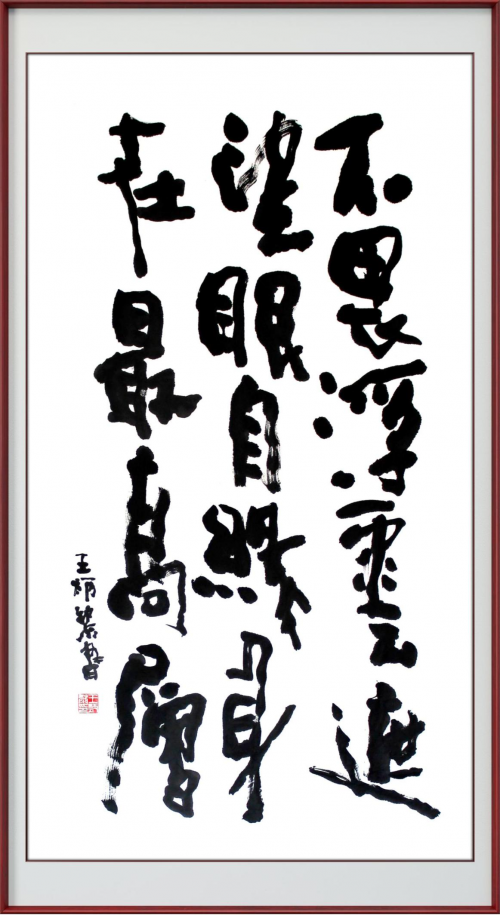 不畏浮雲遮
望眼自緣身
在最高層
王炳